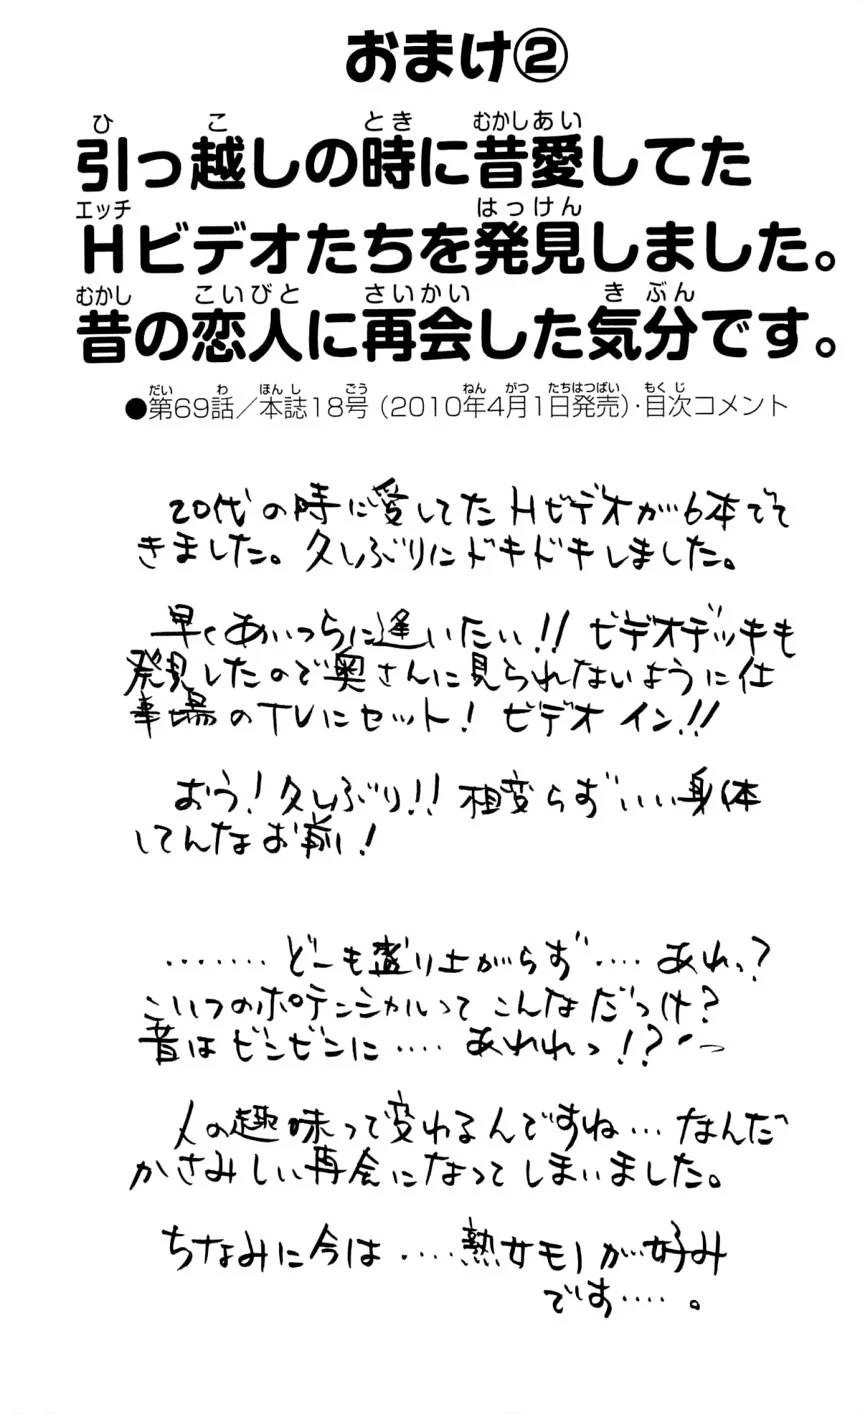 おまけ②
引っ越しの時に昔愛してた
Hビデオたちを発見しました。
昔の恋人に再会した気分です。
●第69話／本誌18号(2010年4月1日発売)・目次コメント
20代の時に愛してたHビデオが6本でて
きました。久しぶりにドキドキしました。
早くあいつらに逢いたい!! ビデオデッキも
発見したので奥さんに見られないように仕
事場のTVにセット! ビデオイン!!
おう! 久しぶり!! 相変らずいい身体
してんなお前!
........どーも盛り上がらず.... あれっ?
こいつのポテンシャルってこんなだっけ?
昔はビンビンに.... あれれっ!?
人の趣味って変わるんですね... なんだ
かさみしい再会になってしまいました。
ちなみに今は....熟女モノが好み
です....。